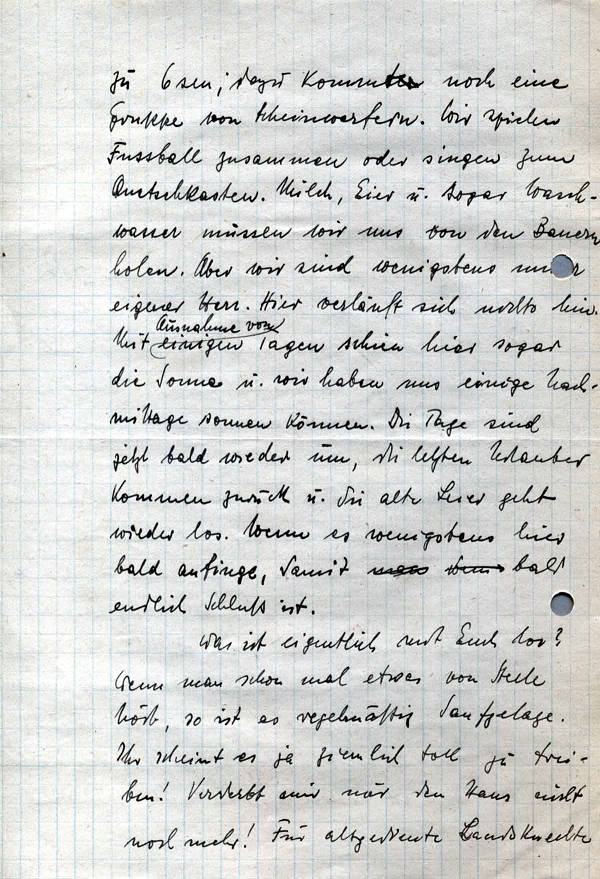 zu 6sen; dazu kommt noch eine
Gruppe von Scheinwerfern. Wir spielen
Fussball zusammen oder singen zum
Quetschkasten. Milch, Eier u. sogar Wasch-
wasser müssen wir uns von den Bauern
holen. Aber wir sind wenigstens unser
eigener Herr. Hier verläuft sich nichts hin.
Mit Ausnahme von
einigen Tagen schien hier sogar
die Sonne u. wir haben uns einige Nach-
mittage sonnen können. Die Tage sind
jetzt bald wieder um, die letzten Urlauber
kommen zurück u. die alte Leier geht
wieder los. Wenn es wenigstens hier
bald anfinge, damit bald
endlich Schluß ist.
Was ist eigentlich mit Euch los?
Wenn man schon mal etwas von
hört, so ist es regelmäßig Saufgelage.
Ihr scheint es ja ziemlich toll zu trei-
ben! Verderbt mir nur den Hans nicht
noch mehr! Für altgediente Landsknechte